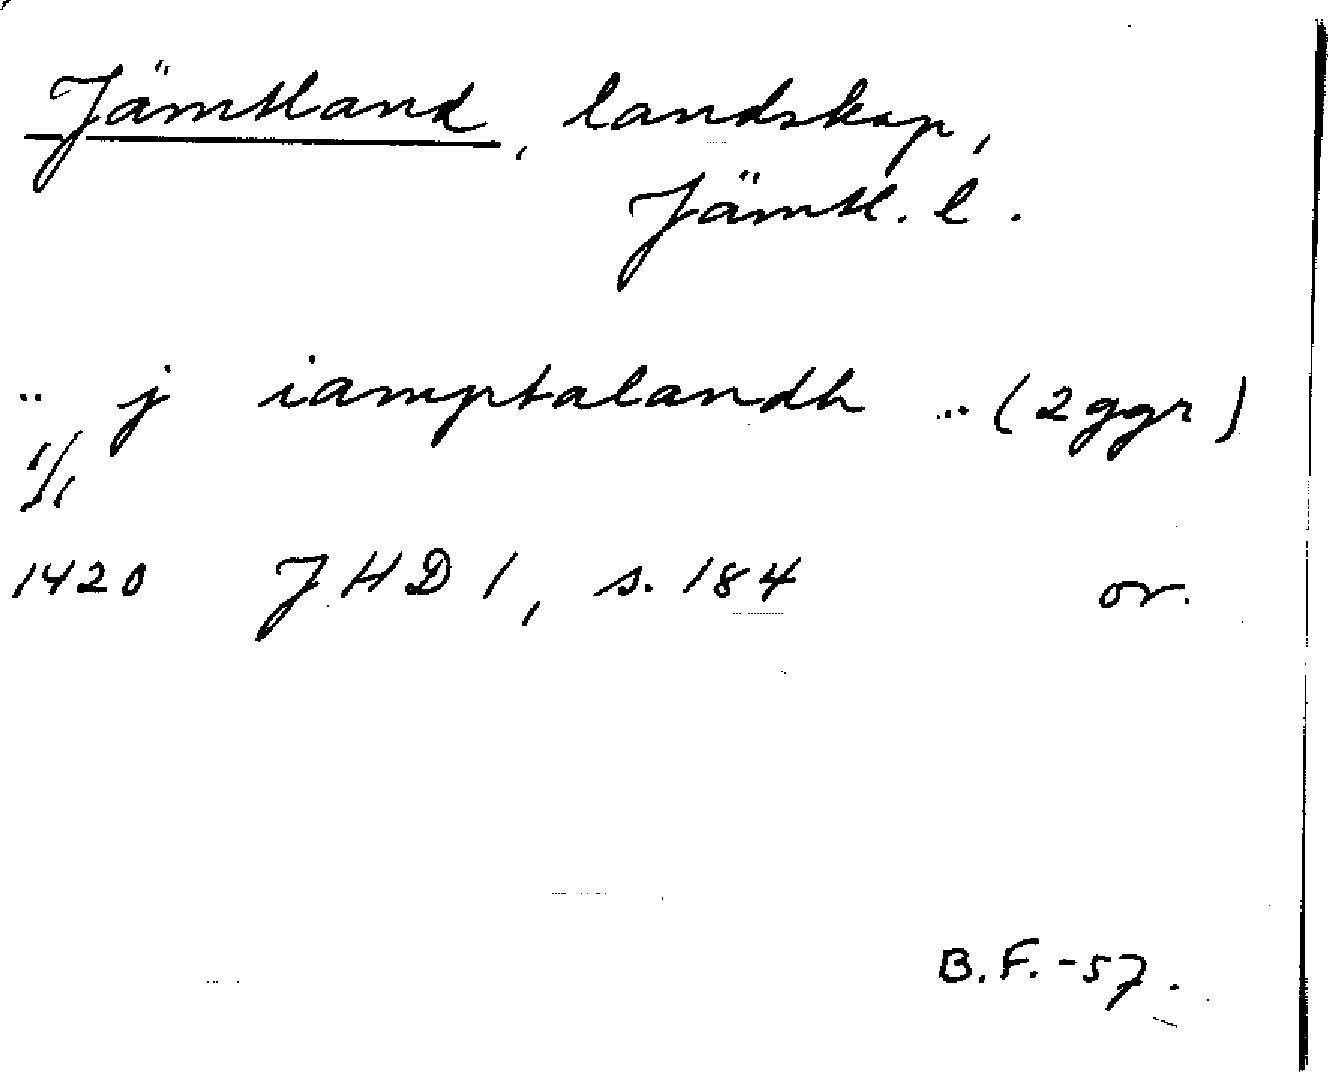 Jämtland, landskap,
Jämtl. l.
.. j iamptalandh ... (2 ggr)
1/1
1420 JHD 1, s. 184 or.
B.F.-57.